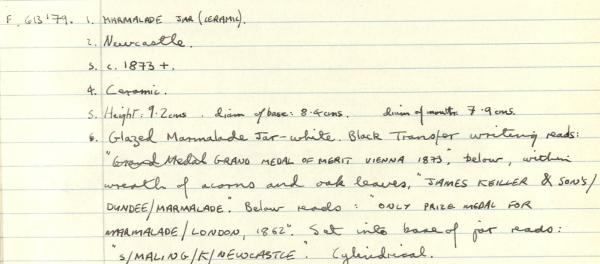 F. 613'79. 1. MARMALADE JAR (CERAMIC).
2. Newcastle.
3. c. 1873 +.
4. Ceramic.
5. Height: 9.2cms. diam of base: 8.4cms. diam of mouth: 7.9cms.
6. Glazed Marmalade Jar-white. Black Transfer writing reads:
"Grand Medal GRAND MEDAL OF MERIT VIENNA 1873", below, within
wreath of acorns and oak leaves, "JAMES KEILLER & SON'S/
DUNDEE/MARMALADE". Below reads: "ONLY PRIZE MEDAL FOR
MARMALADE/LONDON, 1862". Set into base of jar reads:
"S/MALING/K/NEWCASTLE". Cylindrical.